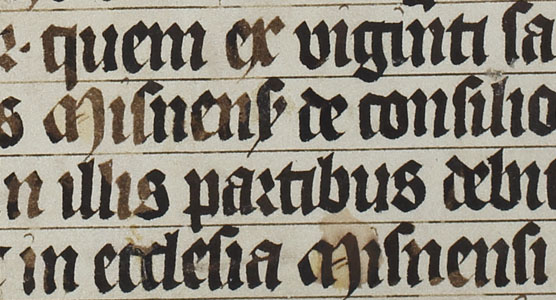 quem ex viginti sa
s Misnensis de consilio
n illis partibus debit
in ecclesia Misnensi